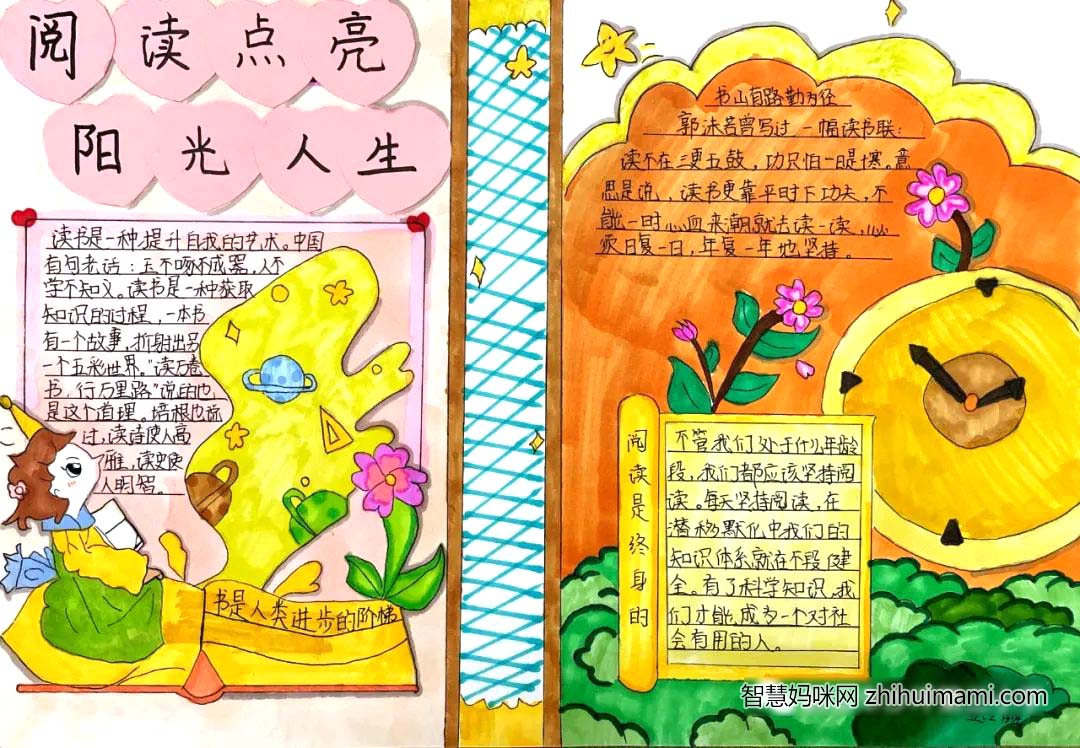 阅读点亮
阳光人生
读书是一种提升自我的艺术。中国
有句老话：玉不啄不成器，人不
学不知义。读书是一种获取
知识的过程，一本书
有一个故事，折射出另
一个五彩世界。“读万卷
书，行万里路”说的也
是这个道理。培根也说
过，读诗使人高
雅，读史使
人明智。
书是人类进步的阶梯
书山有路勤为径
郭沫若曾写过一幅读书联：
读不在三更五鼓，功只怕一曝十寒。意
思是说，读书更靠平时下功夫，不
能一时心血来潮就去读一读，必
须日复一日，年复一年地坚持。
阅读是终身的
不管我们处于什么年龄
段，我们都应该坚持阅
读。每天坚持阅读，在
潜移默化中我们的
知识体系就在不段健
全。有了科学知识，我
们才能成为一个对社
会有用的人。
智慧妈咪网 zhihuimami.com